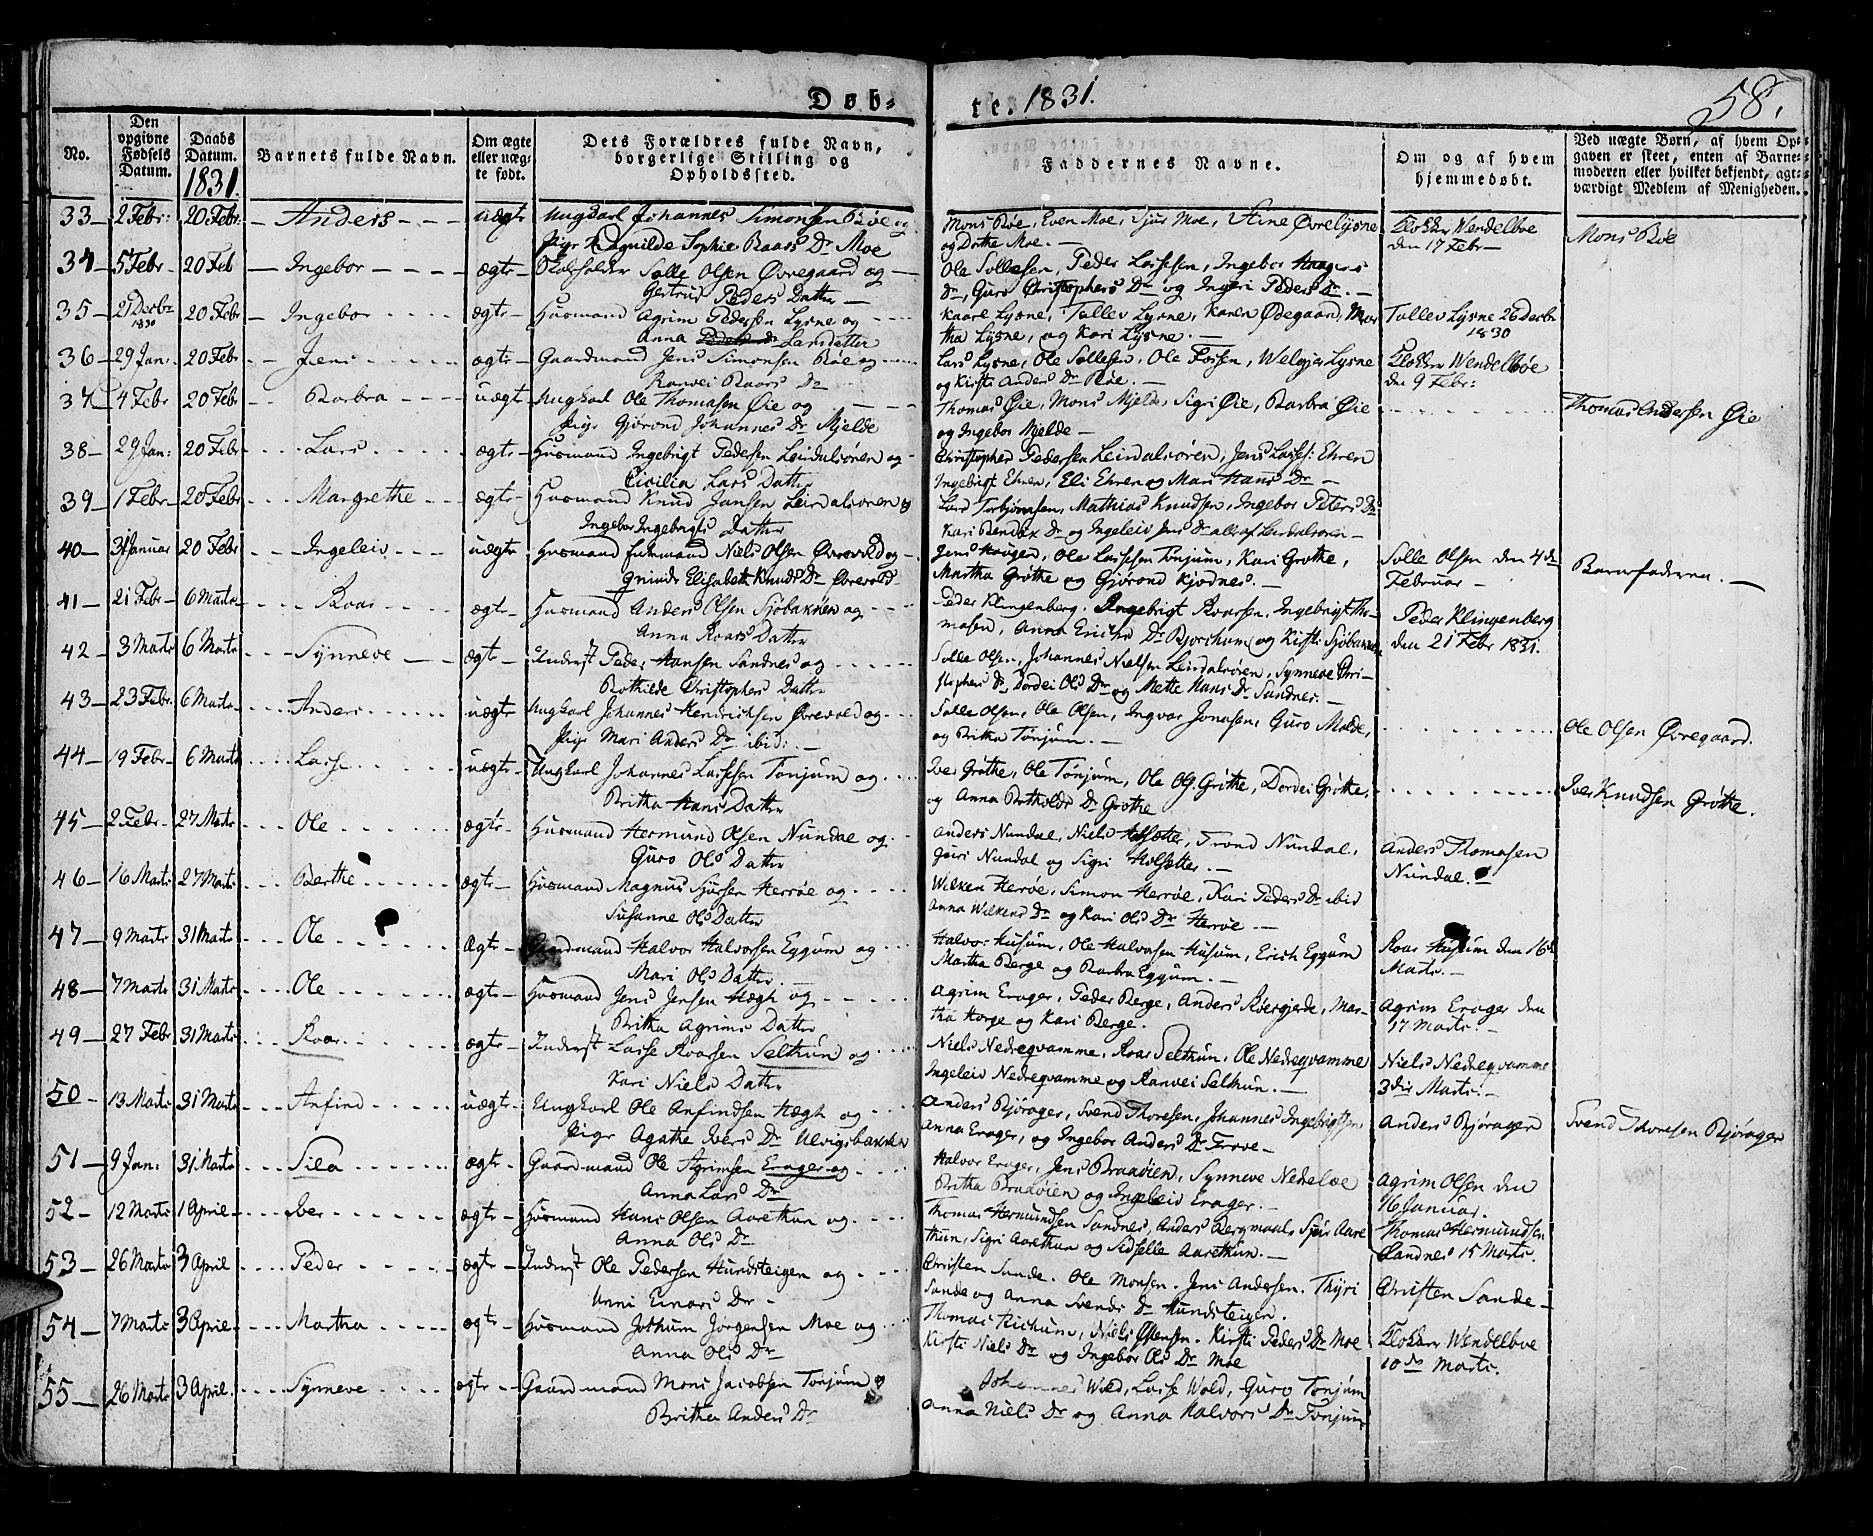 Døb=
te. 1831.
58.
No.
Den opgivne Fødsels Datum.
Daabs Datum. 1831.
Barnets fulde Navn.
Om ægte eller uæg- te født.
Dets Forældres fulde Navn, borgerlige Stilling og Opholdssted.
Faddernes Navne.
Om og af hvem hjemmedøbt.
Ved uægte Børn, af hvem Op- gaven er skeet, enten af Barne- moderen eller hvilket bekjendt, agt- værdigt Medlem af Menigheden.
33 - 2 Febr: 20 Febr: - Anders - - - uægte Ungkarl Johannes Simonsen Røe og Mons Røe, Even Moe, Sjur Moe, Stine Øvrelysne Klokker Wendelboe Mons Røe
Pige Ragnilde Sophie Roars Dr Moe og Dorthe Moe. - den 17 Febr -
34 - 5 Febr - 20 Feb - Ingebor - - - - ægte - Solle Olsen Øvregaard og - Ole Sollesen, Peder Lassesen, Ingebor
Gertrud Peders Datter - Dr, Guro Christophers Dr og Ingeri Peders Dr. -
35 - 21 Decbr 1830 20 Febr - Ingebor - - - - ægte - Huusmand Agrim Pedersen Lysne og - Kaare Lysne, Tollev Lysne, Karen Ødegaard, Mar- Tollev Lysne 26 Decbr
Anna Larsdatter tha Lysne, og Kari Lysne. - 1830
36 - 29 Jan: 20 Febr - - Jens - - - - ægte - Gaardmand Jens Simonsen Røe og - Lars Lysne, Ole Sollesen, Ole Fossen, Welgjer Lysne Klokker Wendelboe
Ranvei Roars Dr og Kirsti Anders Dr Røe. - den 9 Febr:
37 - 4 Febr 20 Febr - - Barbra - - - - uægte Ungkarl Ole Thomasen Øie og - - - Thomas Øie, Mons Mjelde, Sigri Øie, Barbra Øie Thomas Andersen Øie
Pige Gjørond Johannes Dr Mjelde og Ingebor Mjelde -
38 - 29 Jan: 20 Febr - - - Lars - - - - ægte - Huusmand Ingebrigt Pedersen Leirdalsøren og - Christopher Pedersen Leirdalsøren, Jens Lasses: Ehren
Cicilia Lars Datter Ingebrigt Ehren, Eli Ehren og Mari Hans Dr -
39 - 1 Febr - 20 Febr - - Margrethe - - - ægte - Huusmand Knud Jansen Leirdalsøren og Lars Torbjørnsen, Mathias Knudsen, Ingebor Peters Dr
Ingebor Ingebrigts Datter Kari Bendix Dr og Ingeleiv Jens Dr alle af Leirdalsøren -
40 - 31 Januar 20 Febr - - - Ingeleiv - - - uægte Huusmand Enkemand Niels Olsen Øvrevold og - Jens Hougen, Ole Lassesen Tønjum, Kari Grøthe, Solle Olsen den 4de Barnefaderen. -
Qvinde Elisabeth Knuds Dr Øvrevold - Martha Grøthe og Gjørond Kjødnes. - Februar -
41 - 21 Febr - 6 Marts - - - Roar - - - - ægte - Huusmand Anders Olsen Sjøbakken og - - - Peder Klingenberg, Ingebrigt Roarsen, Ingebrigt Tho- Peder Klingenberg
Anna Roars Datter masen, Anna Erichs Dr Bjorchum og Kirsti Sjøbakken den 21 Febr 1831.
42 - 3 Marts 6 Marts - - - Synneve - - ægte - Inderst Peder Hansen Sandnes og - - - - Solle Olsen, Johannes Nielsen Leirdalsøren, Synneve Chri-
Bothilde Christophers Datter stophers Dr, Dordei Ols Dr og Mette Hans Dr Sandnes. -
43 - 23 Febr. 6 Marts - - - Anders - - - - uægte Ungkarl Johannes Hendrichsen Øvrevold og - - - Solle Olsen, Ole Olsen, Ingvar Jonasen, Guro Molde, Ole Olsen Øvregaard.
Pige Mari Anders Dr ibid: - og Britha Tønjum. -
44 - 19 Febr - 6 Marts - - - Lasse - - - - uægte - Ungkarl Johannes Lassesen Tønjum og - - - Iver Grøthe, Ole Tønjum, Ole Ols: Grøthe, Dordei Grøthe, Iver Knudsen Grøthe.
Britha Hans Datter og Anna Botholds Dr Grøthe
45 - 2 Febr - 27 Marts - - - Ole - - - - ægte - Huusmand Hermund Olsen Nundal og - - Anders Nundal, Niels Holsætter, Trond Nundal, Anders Thomasen
Guro Ols Datter Guri Nundal og Sigri Holsætter. - Nundal. -
46 - 16 Marts 27 Marts - - - Berthe - - - - ægte - Huusmand Magnus Sjursen Herrøe og - - - - Wilken Herrøe, Simon Herrøe, Kari Peders Dr ibid
Susanne Ols Datter Anna Wilkens Dr og Kari Ols Dr Herrøe -
47 - 9 Marts 31 Marts - - - Ole - - - - Ægte - Gaardmand Halvor Halvorsen Eggum og - - - Halvor Husum, Ole Halvorsen Husum, Erich Eggum Roar Husum den 16de
Mari Ols Datter. Martha Berge og Barbra Eggum. - Marts. -
48 - 7 Marts 31 Marts - - - Ole - - - - ægte - Huusmand Jens Jensen Hægh og - - - - Agrim Erager, Peder Berge, Anders Røergjerde, Mar- Agrim Erager den
Britha Agrims Datter tha Horge og Kari Berge. 17 Marts. -
49 - 27 Febr 31 Marts - - - Roar - - - - ægte - Inderst Lasse Roarsen Selthun og - - - Niels Nedreqvamme, Roar Selthun, Ole Nedreqvamme Niels Nedreqvamme
Kari Niels Datter Ingeleiv Nedreqvamme og Ranvei Selthun. - 3die Marts. -
50 - 13 Marts 31 Marts - - - Anfind - - - - uægte - Ungkarl Ole Anfindsen Hægh og - - - Anders Bjørager, Svend Thoresen, Johannes Ingebrigtsen, Anders Bjørager Svend Thoresen Bjørager
Pige Agathe Ivers Dr Ulvigsbakken Anna Erager, og Ingebor Anders Dr Trove -
51 - 9 Jan: 31 Marts - - - Sila - - - - ægte - Gaardmand Ole Agrimsen Erager og - - - Halvor Erager, Jens Braaøien, Synneve Nedreloe Agrim Olsen den
Anna Lars Dr Britha Braaøien og Ingeleiv Erager. - 16 Januar.
52 - 12 Marts 1 April - - - Iver - - - - ægte - Huusmand Hans Olsen Aarethun og - - - Thomas Hermundsen Sandnes, Anders Bergmaal, Sjur Aare- Thomas Hermundsen
Anna Ols Dr thun, Sigri Aarethun og Sidselle Aarethun. - Sandnes 15 Marts.
53 - 26 Marts 3 April - - - Peder - - - - ægte - Inderst Ole Pedersen Hundsteigen og - - - Christen Sande, Ole Monsen, Jens Andersen, Thyri Christen Sande -
Unni Einars Dr - Sande og Anna Svends Dr Hundsteigen.
54 - 7 Marts 3 April - - - Martha - - - - ægte - Huusmand Jothum Jørgensen Moe og - - - Thomas Nielsen Ostensen, Kirsti Peders Dr Moe Klokker Wendelboe
Anna Ols Dr Kirsti Niels Dr og Ingebor Ols Dr Moe 10de Marts.
55 - 26 Marts 3 April. - - - Synneve - - - - ægte - - Gaardmand Mons Jacobsen Tønjum og Johannes Wold, Lasse Wold, Guro Tønjum
Britha Anders Dr Anna Niels Dr og Anna Halvors Dr Tønjum,